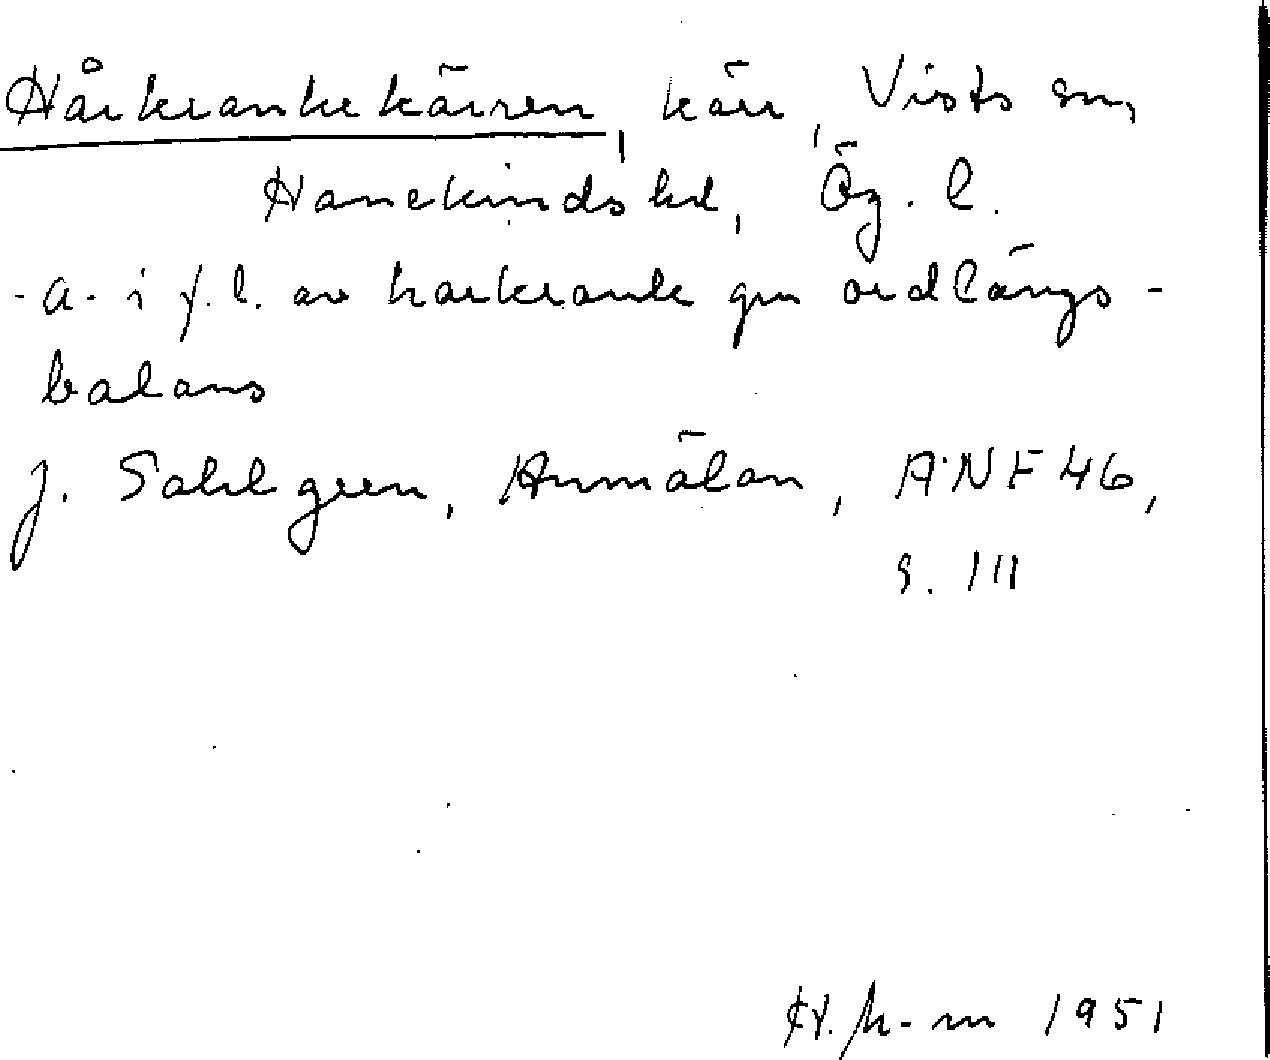 Hårkrankekärren, kärr, Vists sn,
Hanekinds hd, Ög. l.
-a- i f.l. av harkrank gm ordlängs-
balans
J. Sahlgren, Anmälan, ANF 46,
s. 111
H. k-m 1951